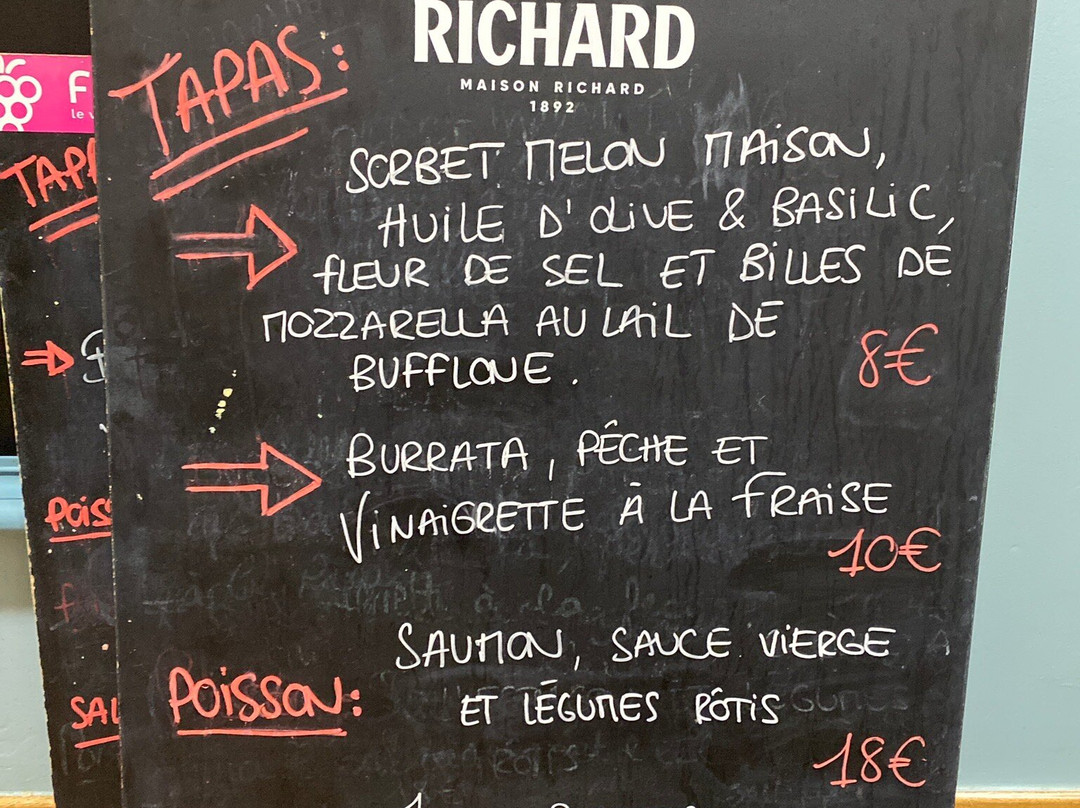 RICHARD
MAISON RICHARD
1892
TAPAS:
SORBET MELON MAISON,
HUILE D'OLIVE & BASILIC,
FLEUR DE SEL ET BILLES DE
MOZZARELLA AU LAIL DE
BUFFLONE.
8€
BURRATA, PÊCHE ET
VINAIGRETTE À LA FRAISE
10€
POISSON:
SAUMON, SAUCE VIERGE
ET LÉGUMES RÔTIS
18€